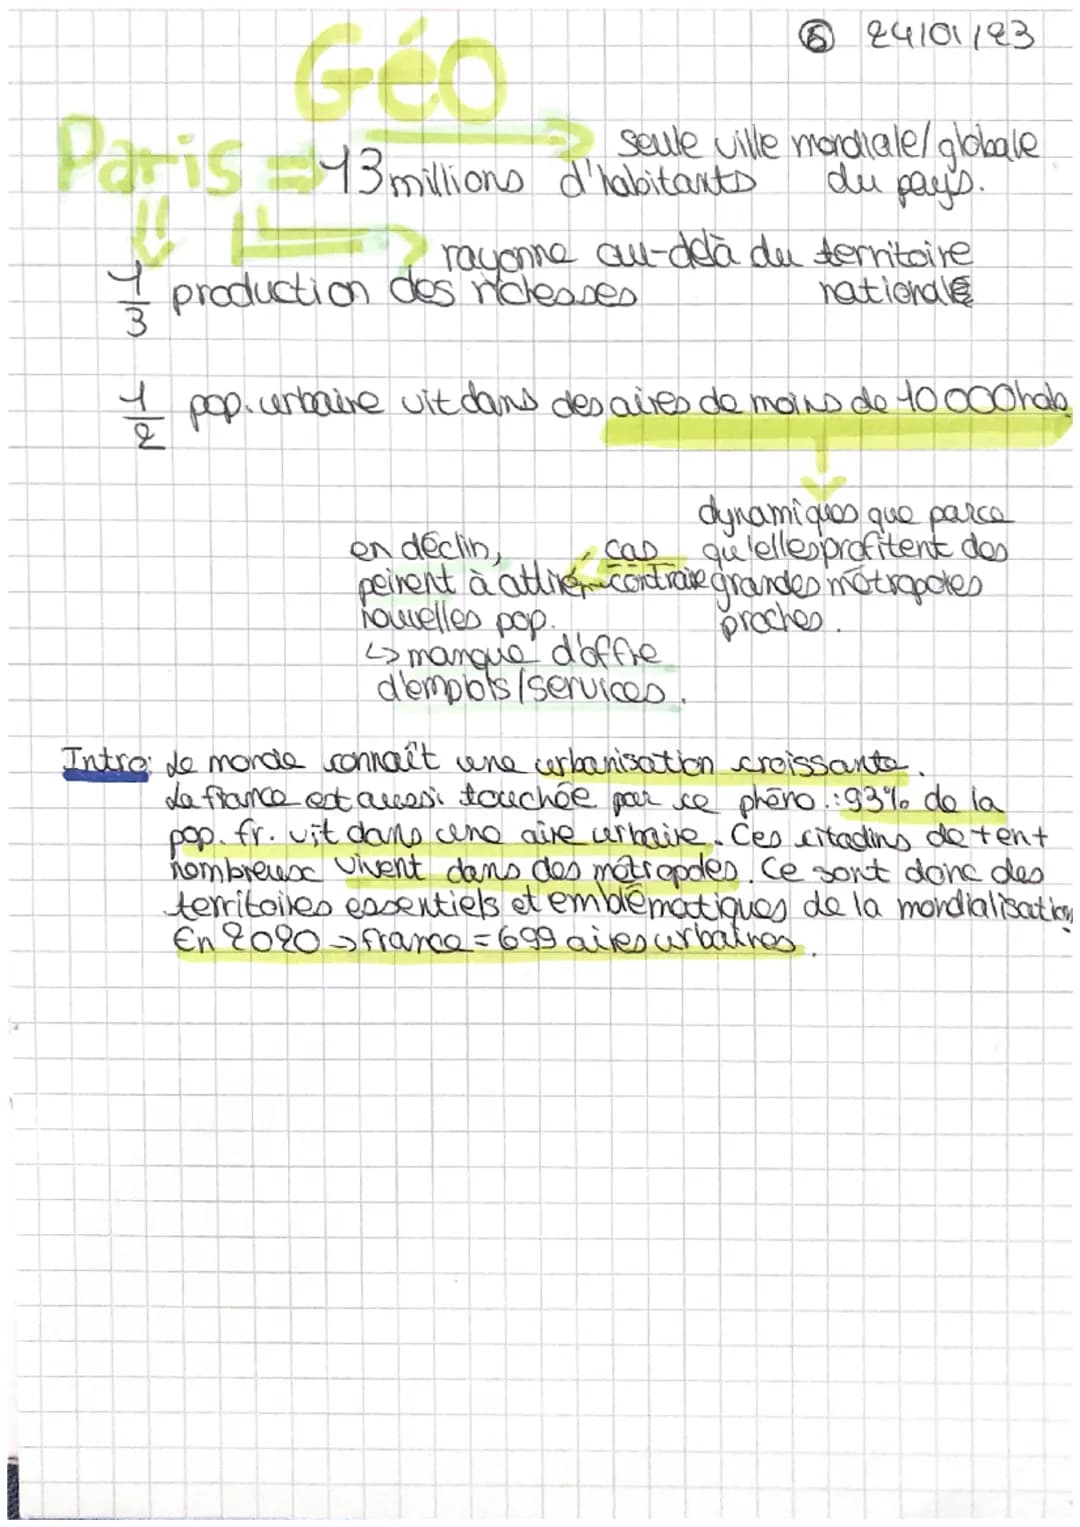 ⑥ 24/01/23
Géo
Paris = 13 millions d'habitants
seule ville mondiale/globale
du pays.
rayonne au-delà du territoire
nationale
1/3 production des richesses
1/2 pop. urbaine vit dans des aires de moins de 10 000 hab.
dynamiques que parce
qu'elles profitent des
grandes métropoles
proches.
cas
contraire
en déclin,
peinent à attirer
nouvelles pop.
↳ manque d'offre
d'emplois/services.
Intro: Le monde connaît une urbanisation croissante.
La france est aussi touchée par ce phéno.: 93% de la
pop. fr. vit dans une aire urbaine. Ces citadins de + en +
nombreux vivent dans des métropoles. Ce sont donc des
territoires essentiels et emblématiques de la mondialisation.
En 2020 → france = 699 aires urbaines.